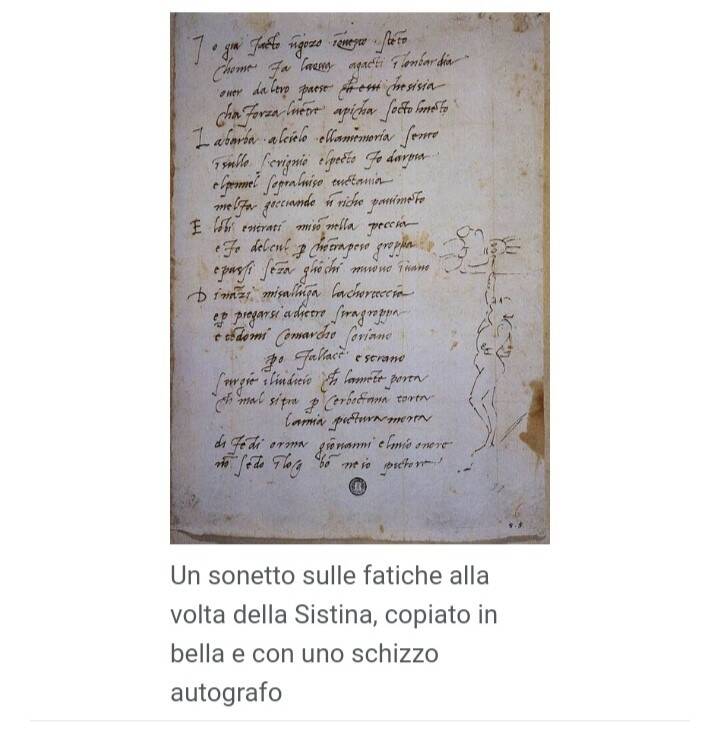 I o gia facto ūgozo īquesto stēto
chome fa lacqua agacti ī lonbardia
over daltro paese che essi chesisia
cha forza luētre apicha socto lmēto
La barba alcielo ellamemoria sento
īsullo scrignio elpecto fo darpia
elpennel sopraluiso tuctauia
melfa gocciando ū richo pauimēto
E lobi entrati miso nella peccia
e fo delcul p chōtrapeso groppa
e passi sēza gliochi muouo īuano
Dināzi misallūga lachorteccia
e p piegarsi adietro siragroppa
e tēdomi comarcho soriano
po fallace e strano
surgie iliudicio ch lamēte porta
ch mal sipra p cerboctana torta
lamia pictura morta
di fedi orma giouanni elmio onore
nō sēdo īlog bō ne io pictore
Un sonetto sulle fatiche alla
volta della Sistina, copiato in
bella e con uno schizzo
autografo